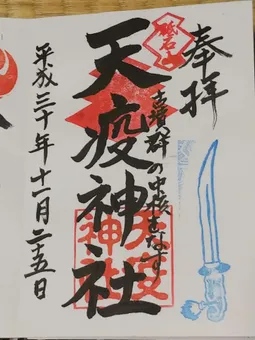 奉拝
砥石山
天疫神社
古墳群の中核をなす
天疫神社
平成三十年十一月二五日